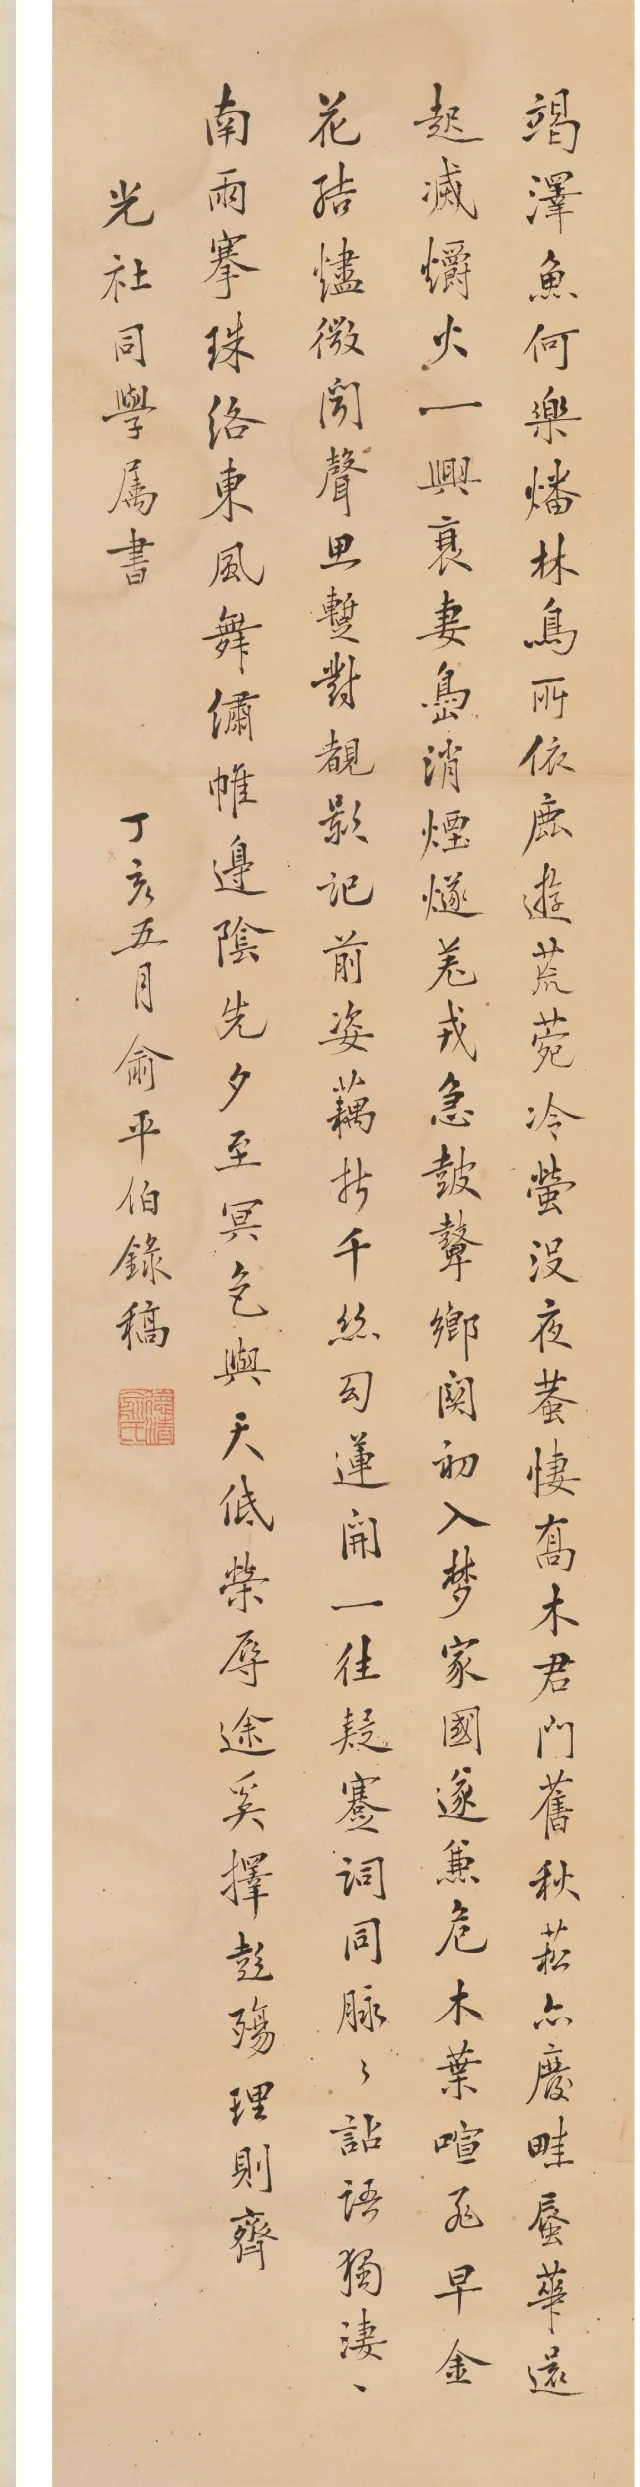 竭澤魚何樂燔林鳥所依鹿遊荒菀冷螢沒夜蓋悽喬木君門舊秋菘亦廢畦蜃華還
起滅爝火一興衰妻島消煙燧羌戎急鼓鼙鄉関初入梦家國遂兼危木葉喧飛早金
花結燼微聞聲思蹔對覩影記前姿藕折千絲勾蓮開一往疑蹇詞同脉〻詀語獨淒〻
南雨搴珠络東風舞繡帷邊陰先夕至冥色與天低榮辱途奚擇彭殤理則齊
光社同學属書
丁亥五月俞平伯錄稿
德清俞氏